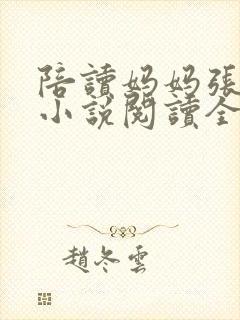 陪讀媽媽張
小說閱讀全
趙冬雲